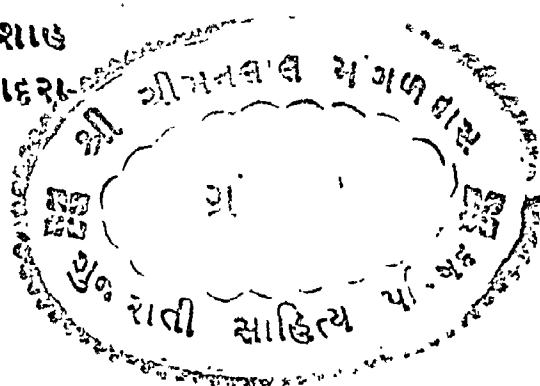 શાહ
દરા-
શ્રી ચીમનલાલ મંગળદાસ
ગ્રં
ગુજરાતી સાહિત્ય પરિષદ